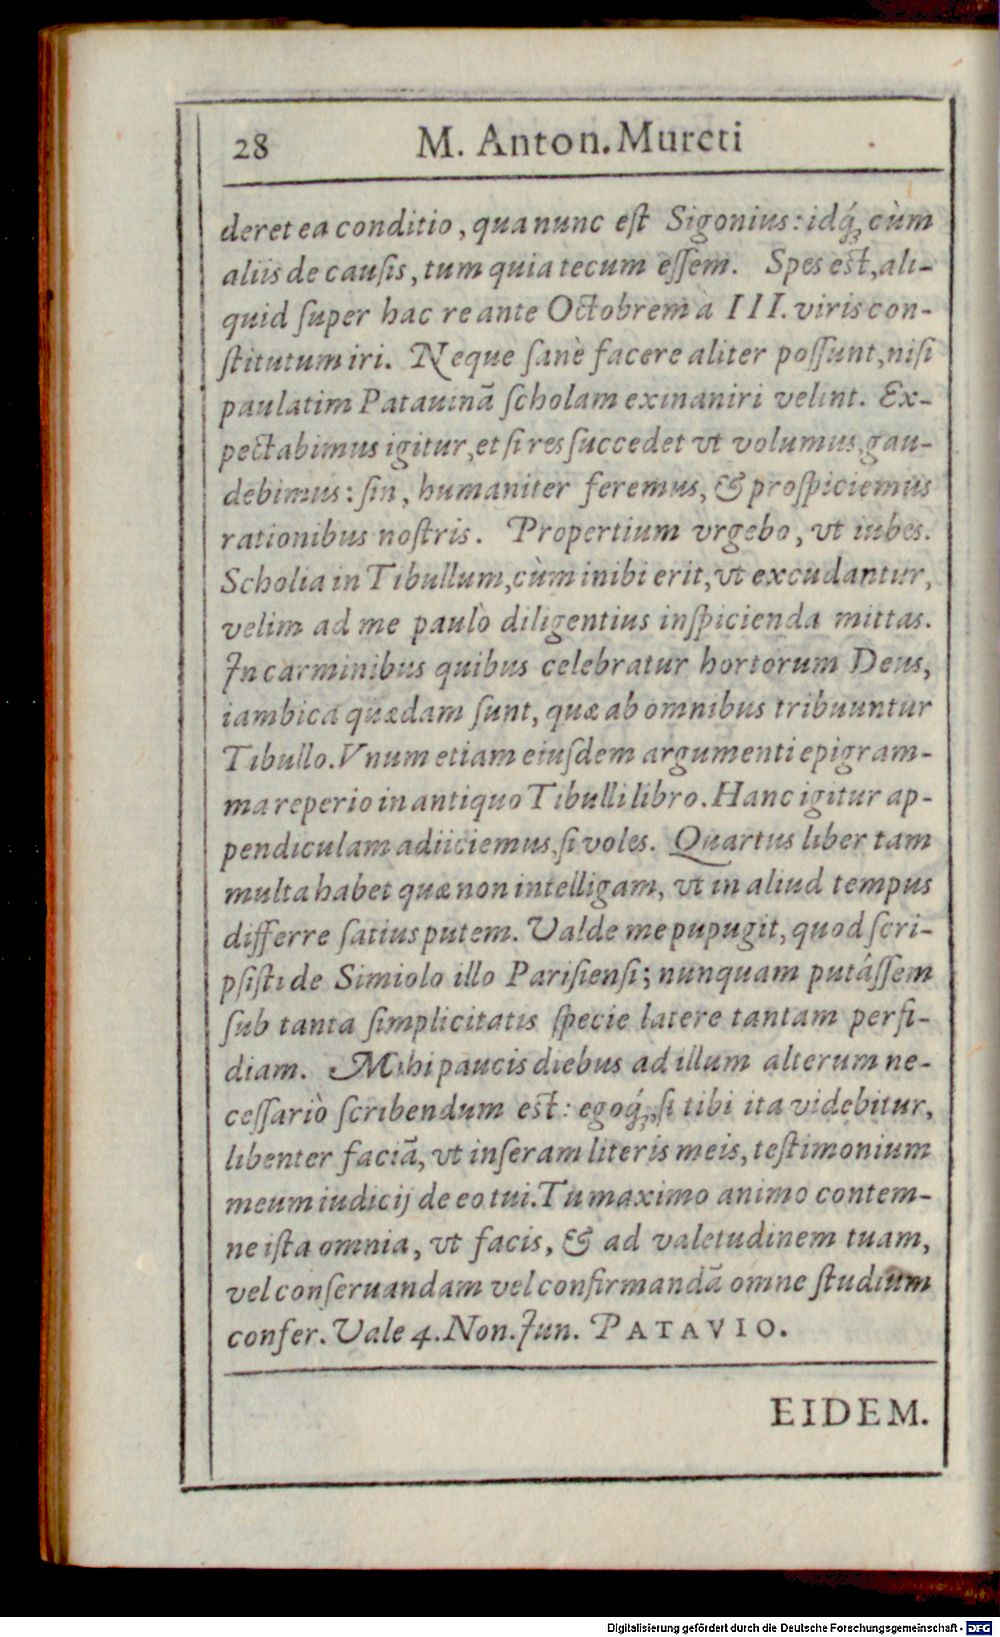 28 M. Anton. Mureti
deret ea conditio, qua nunc eſt Sigonius: idq́ꝫ cùm
aliis de cauſis, tum quia tecum eſſem. Spes eſt, ali-
quid ſuper hac re ante Octobrem à III. viris con-
ſtitutum iri. Neque ſanè facere aliter poſſunt, niſi
paulatim Patauinā ſcholam exinaniri velint. Ex-
pectabimus igitur, et ſi res ſuccedet vt volumus, gau-
debimus: ſin, humaniter feremus, & proſpiciemus
rationibus noſtris. Propertium vrgebo, vt iubes.
Scholia in Tibullum, cùm inibi erit, vt excudantur,
velim ad me paulò diligentius inſpicienda mittas.
In carminibus quibus celebratur hortorum Deus,
iambica quædam ſunt, quæ ab omnibus tribuuntur
Tibullo. Vnum etiam eiuſdem argumenti epigram-
ma reperio in antiquo Tibulli libro. Hanc igitur ap-
pendiculam adiiciemus, ſi voles. Quartus liber tam
multa habet quæ non intelligam, vt in aliud tempus
differre ſatius putem. Valde me pupugit, quod ſcri-
pſiſti de Simiolo illo Pariſienſi; nunquam putâſſem
ſub tanta ſimplicitatis ſpecie latere tantam perfi-
diam. Mihi paucis diebus ad illum alterum ne-
ceſſariò ſcribendum eſt: egoq́ꝫ, ſi tibi ita videbitur,
libenter faciā, vt inſeram literis meis, teſtimonium
meum iudicij de eo tui. Tu maximo animo contem-
ne iſta omnia, vt facis, & ad valetudinem tuam,
vel conſeruandam vel confirmandā omne ſtudium
confer. Vale 4. Non. Jun. PATAVIO.
EIDEM.
Digitalisierung gefördert durch die Deutsche Forschungsgemeinschaft - DFG